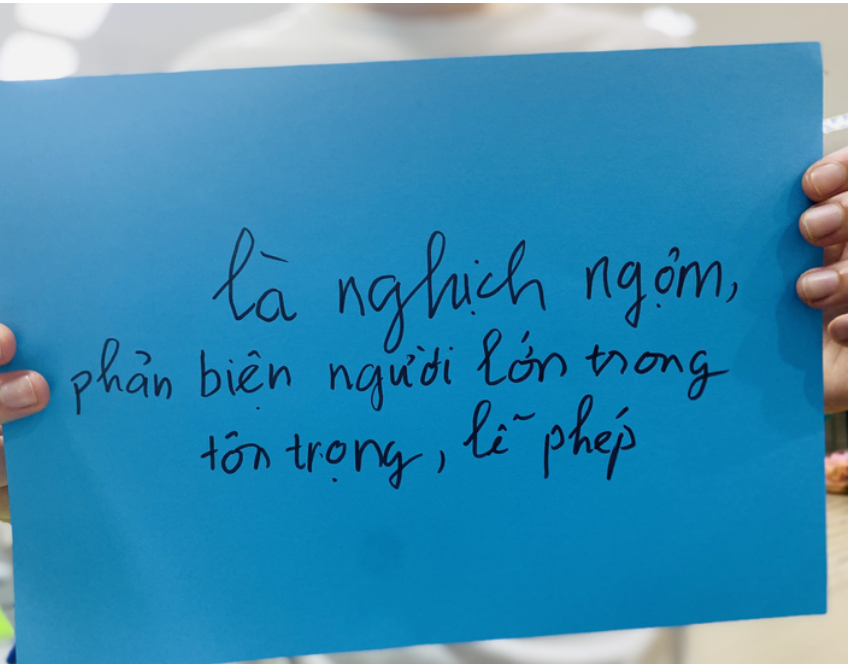 là nghịch ngợm,
phản biện người lớn trong
tôn trọng, lễ phép